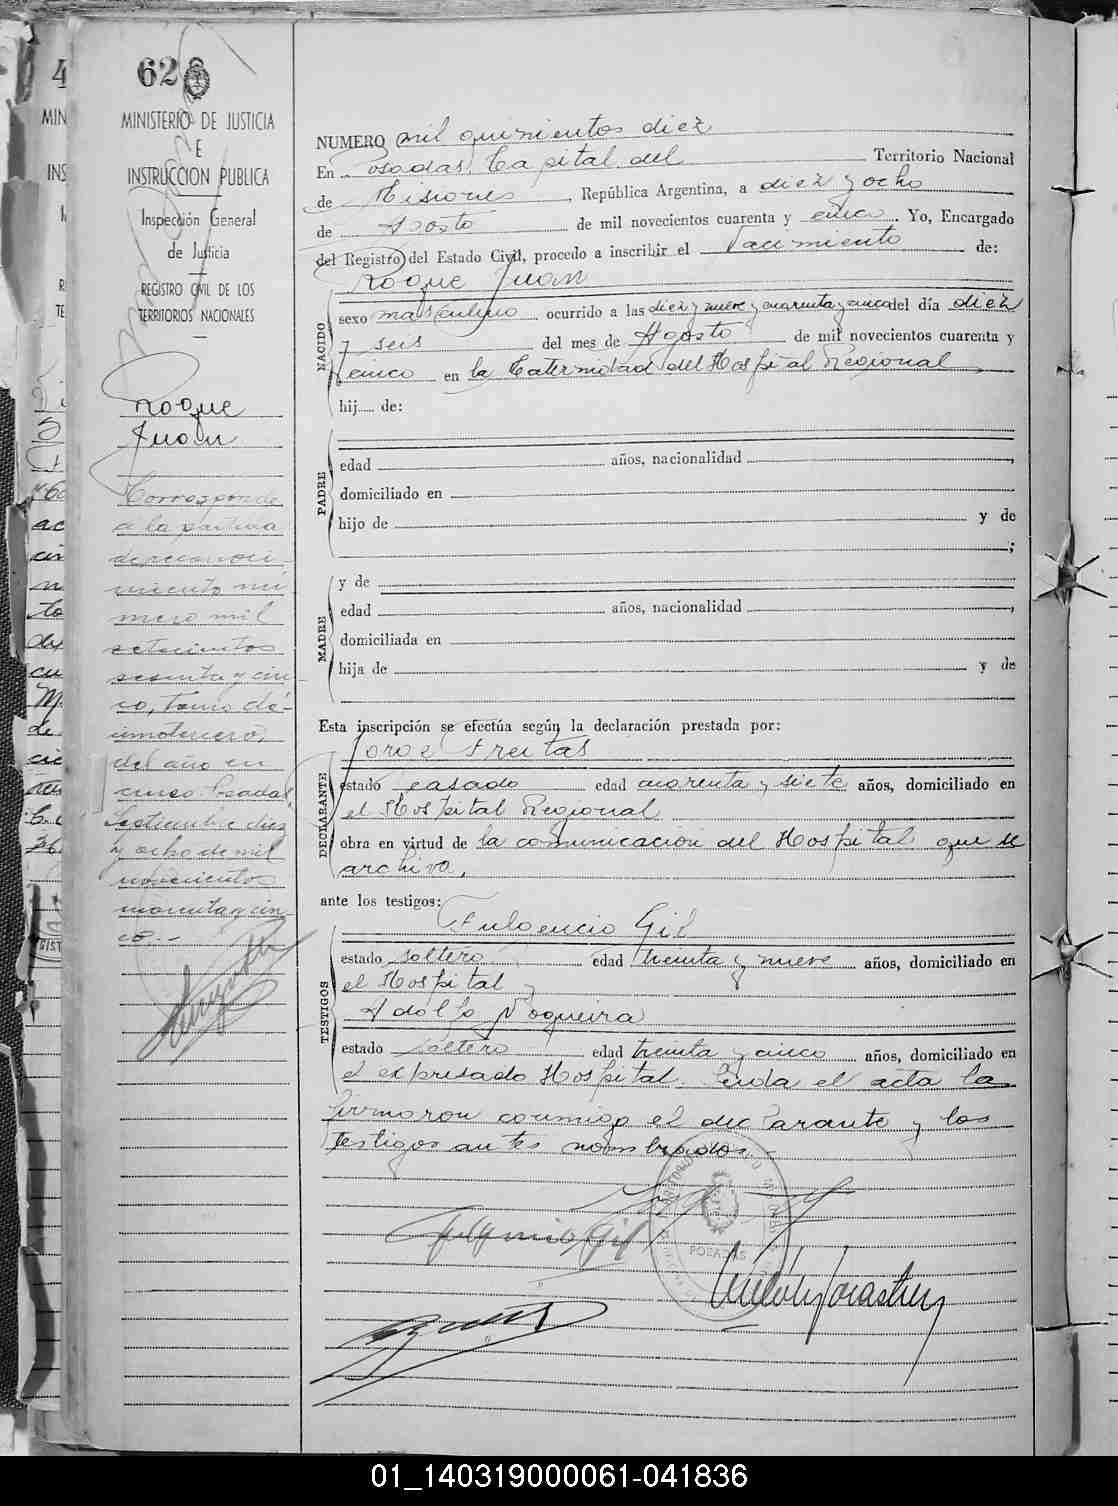 62
MINISTERIO DE JUSTICIA
E
INSTRUCCIÓN PUBLICA
Inspección General
de Justicia
REGISTRO CIVIL DE LOS
TERRITORIOS NACIONALES
Roque
Juan
Corresponde
a la partida
de reconoci
miento nú
mero mil
setecientos
sesenta y cin
co, tomo dé-
cimotercero,
del año en
curso. Posadas
Septiembre diez
y ocho de mil
novecientos
cuarenta y cin
co.-
NUMERO mil quinientos diez
En Posadas, Capital del Territorio Nacional
de Misiones, República Argentina, a diez y ocho
de Agosto de mil novecientos cuarenta y cinco. Yo, Encargado
del Registro del Estado Civil, procedo a inscribir el Nacimiento de:
Roque Juan
NACIDO
sexo masculino ocurrido a las diez y nueve y cuarenta y cinco del día diez
y seis del mes de Agosto de mil novecientos cuarenta y
cinco en la Maternidad del Hospital Regional
hij..... de:
PADRE
edad años, nacionalidad ,
domiciliado en
hijo de y de
;
MADRE
y de
edad años, nacionalidad ,
domiciliada en
hija de y de
Esta inscripción se efectúa según la declaración prestada por:
Jorge Freitas
DECLARANTE
estado casado edad cuarenta y siete años, domiciliado en
el Hospital Regional
obra en virtud de la comunicación del Hospital que se
archiva.
ante los testigos:
Fulgencio Gil
TESTIGOS
estado soltero edad treinta y nueve años, domiciliado en
el Hospital y
Adolfo Nogueira
estado soltero edad treinta y cinco años, domiciliado en
el expresado Hospital. Leida el acta la
firmaron conmigo el declarante y los
testigos antes nombrados.-
Fulgencio Gil
POSADAS
01_140319000061-041836